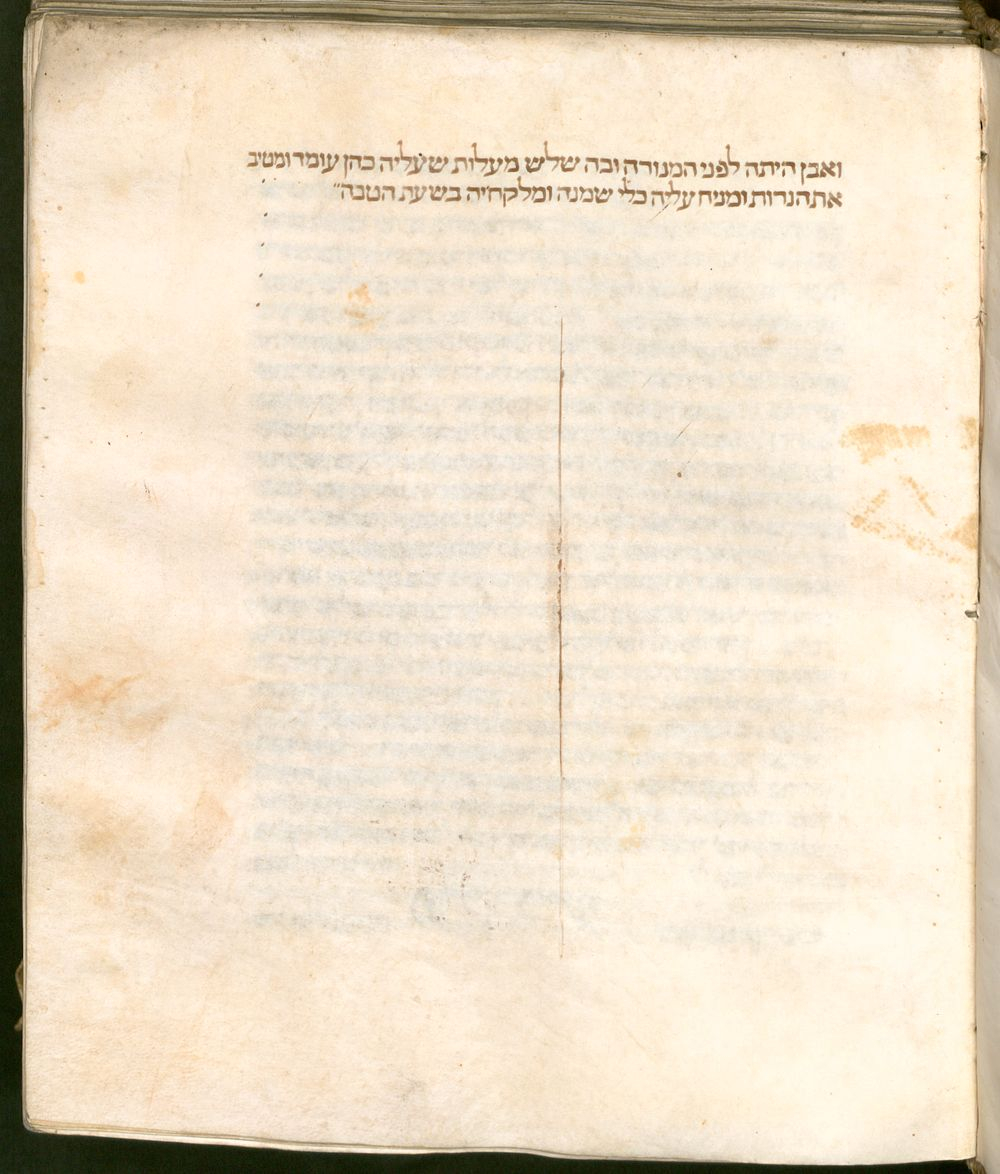 ואבן היתה לפני המנורה ובה שלש מעלות שעליה כהן עומד ומטיב
את הנרות ומניח עליה כלי שמנה ומלקחיה בשעת הטבה״